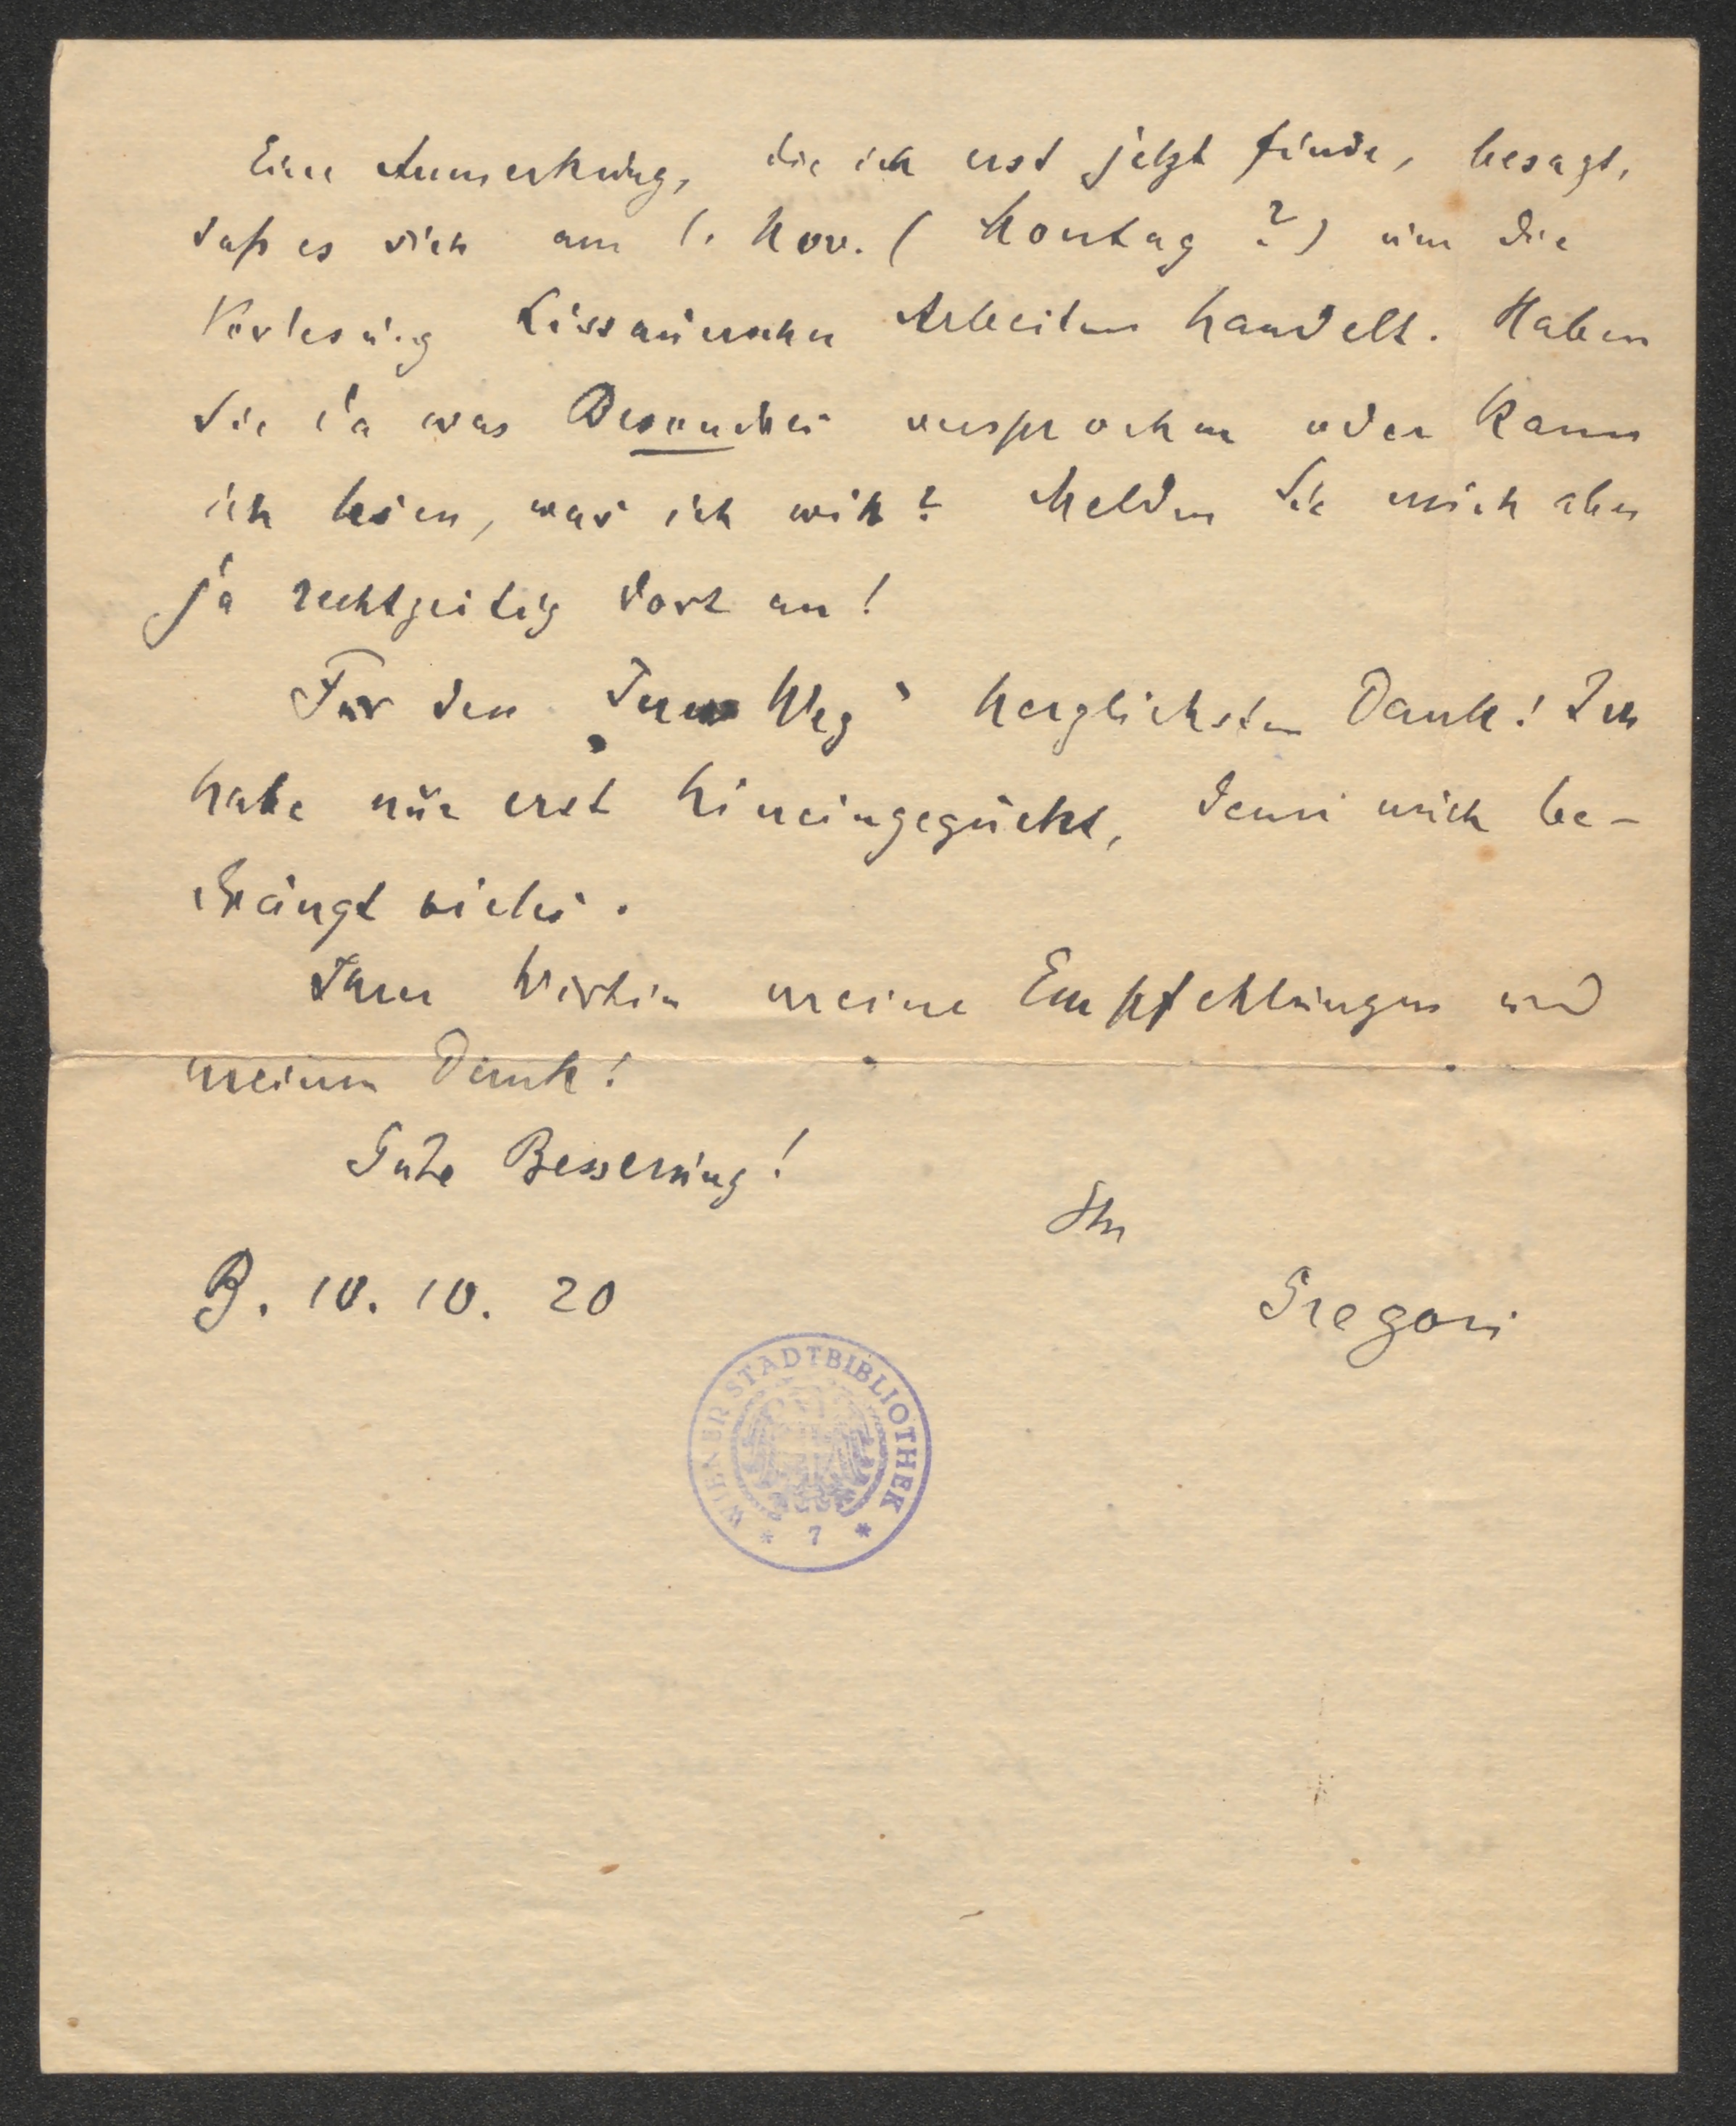 Eine Anmerkung, die ich erst jetzt finde, besagt,
daß es sich am 1. Nov. (Montag?) um die
Vorlesung Lissauerscher Arbeiten handelt. Haben
Sie da was Besonderes versprochen oder kann
ich lesen, was ich will? Melden Sie mich aber
ja rechtzeitig dort an!
Für den „ Weg“ herzlichsten Dank! Ich
habe nur erst hineingeguckt, denn mich be-
drängt vieles.
Ihrer Wirtin meine Empfehlungen und
meinen Dank!
Gute Besserung!
Ihr
B. 10. 10. 20
Gregori
WIENER STADTBIBLIOTHEK
* 7 *